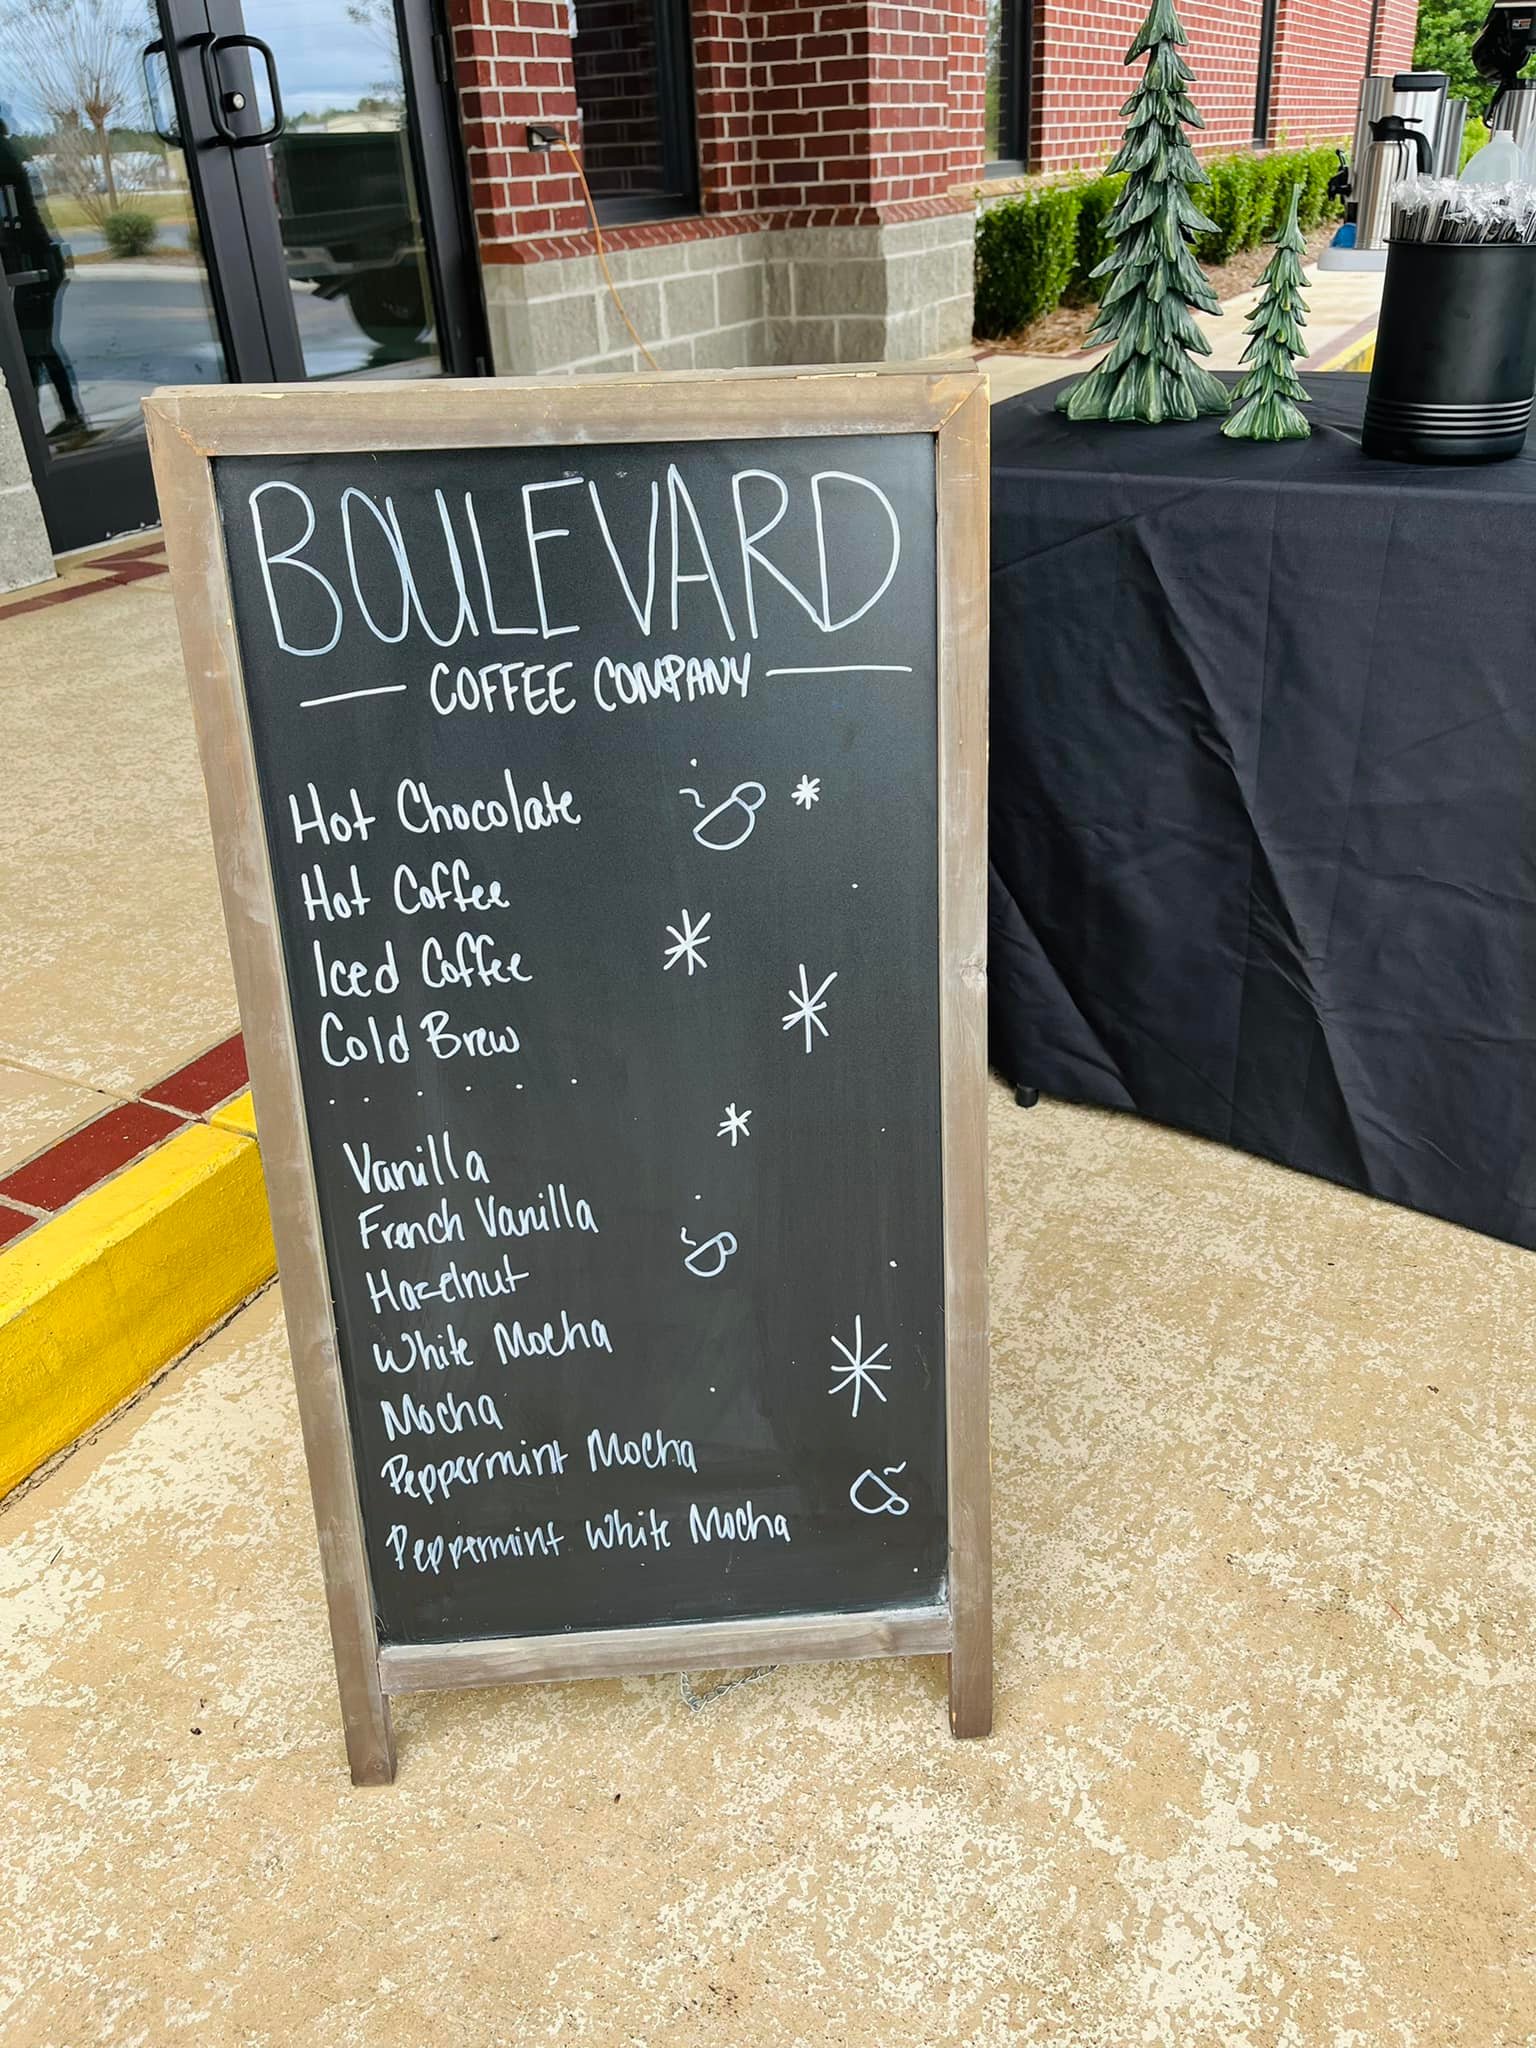 BOULEVARD
COFFEE COMPANY
Hot Chocolate
Hot Coffee
Iced Coffee
Cold Brew
Vanilla
French Vanilla
Hazelnut
White Mocha
Mocha
Peppermint Mocha
Peppermint White Mocha